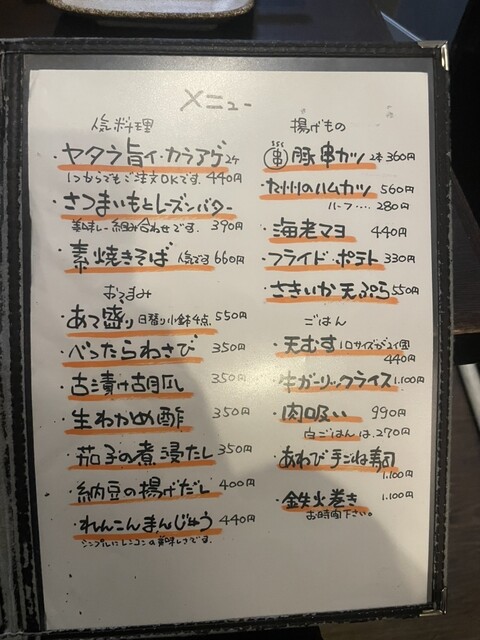 メニュー
人気料理
・ヤタラ旨イ・カラアゲ 2ケ
1つからでもご注文OKです。440円
・さつまいもとレーズンバター
美味しい組み合わせです。390円
・素焼きそば 人気です 660円
おつまみ
・あて盛り 日替り小鉢4点 550円
・べったらわさび 350円
・古漬け胡瓜 350円
・生わかめ酢 350円
・茄子の煮浸たし 350円
・納豆の揚げだし 400円
・れんこんまんじゅう 440円
シンプルにレンコンの美味しさです。
揚げもの
・串 豚串カツ 2本 360円
・九州のハムカツ 560円
ハーフ… 280円
・海老マヨ 440円
・フライド・ポテト 330円
・さきいか天ぷら 550円
ごはん
・天むす 1口サイズが2個
440円
・牛ガーリックライス 1.100円
・肉吸い 990円
白ごはんは.270円
・あわび手ごね寿司
1.100円
・鉄火巻き 1.100円
お時間下さい。